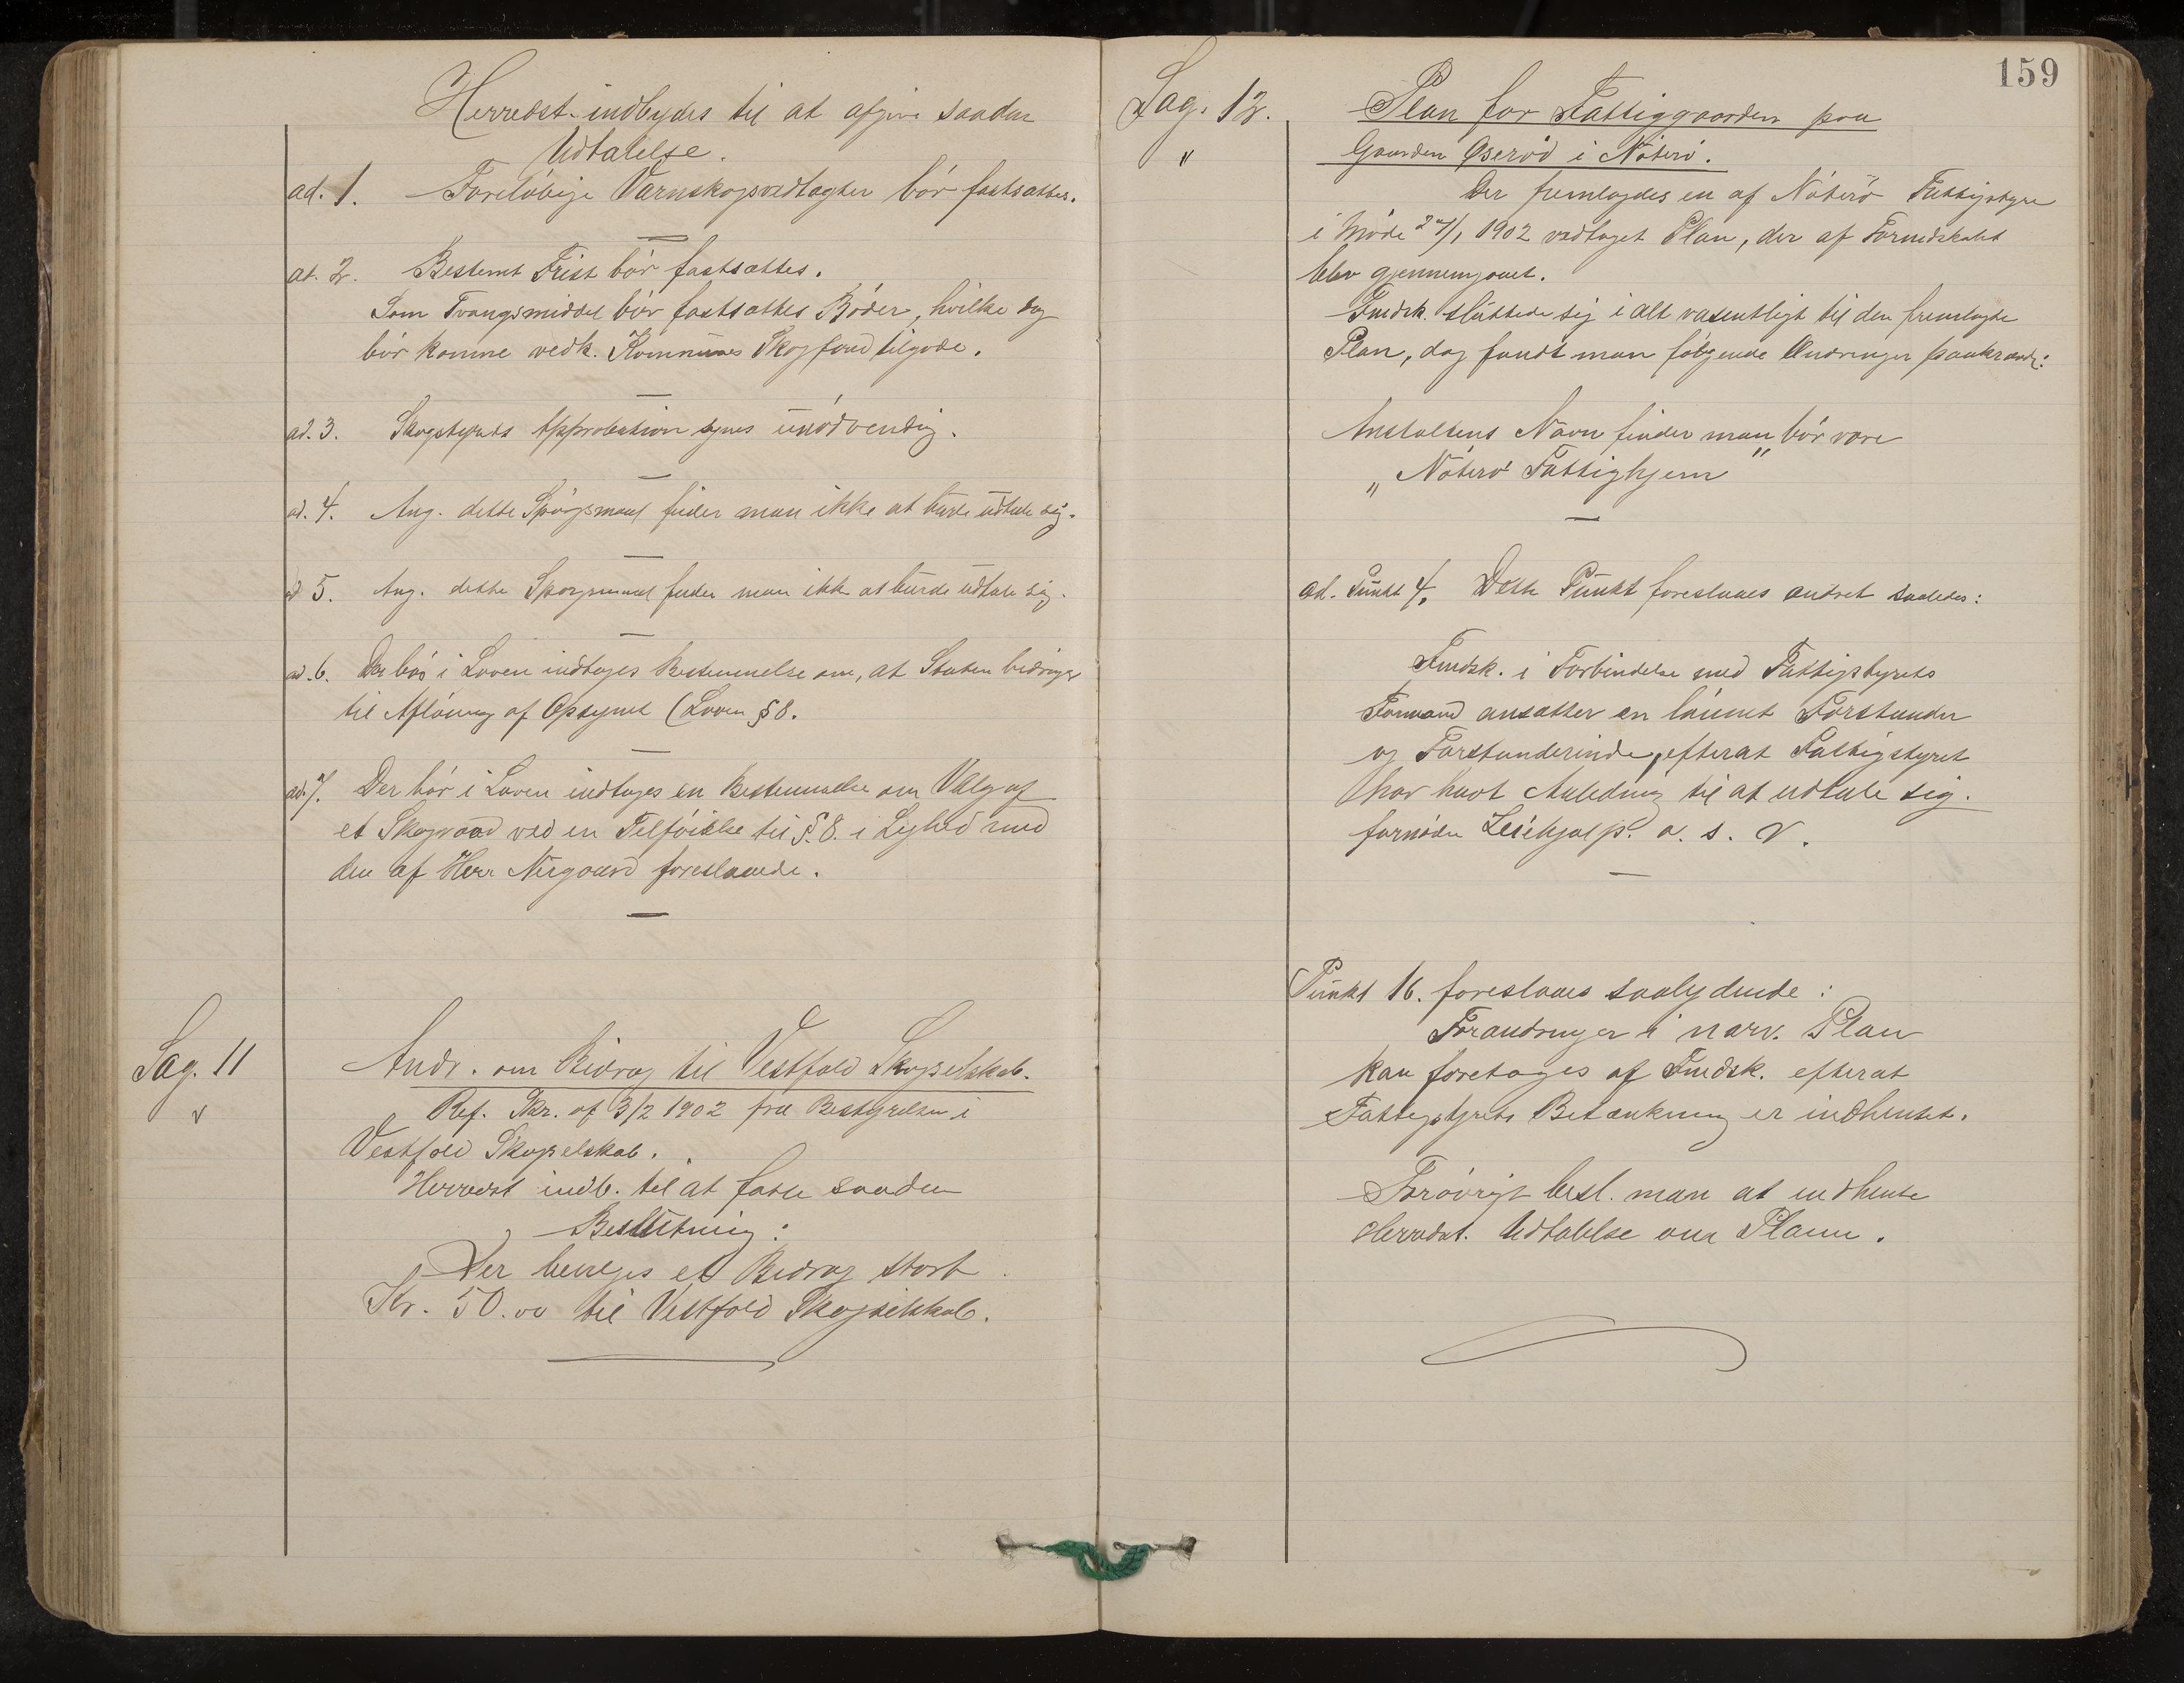 Herredst. indbydes til at afgive saadan
Udtalelse.
ad. 1. Foreløbige Værnskogsvedtægter bør fastsættes.
ad. 2. Bestemt Frist bør fastsættes.
Som Tvangsmiddel bør fastsættes Bøder, hvilke dog
bør komme vedk. Kommunes Skogfond tilgode.
ad. 3. Skogstyrets Approbation synes unødvendig.
ad. 4. Ang. dette Spørgsmaal finder man ikke at burde udtale sig.
ad 5. Ang. dette Spørgsmaal finder man ikke at burde udtale sig.
ad. 6. Der bør i Loven indtages Bestemmelse om, at Staten bidrager
til Aflønning af Opsynet (Loven § 8.
ad. 7. Der bør i Loven indtages en Bestemmelse om Valg af
et Skograad ved en Tilføielse til § 8. i Lighed med
den af Herr Nergaard foreslaaede.
Sag. 11
Andr. om Bidrag til Vestfold Skogselskab.
Ref. Skr. af 3/2 1902 fra Bestyrelsen i
Vestfold Skogselskab.
Herredst indb. til at fatte saadan
Beslutning:
Der bevilges et Bidrag stort
Kr. 50.00 til Vestfold Skogselskab.
159
Sag. 12.
Plan for Fattiggaarden paa
Gaarden Øserød i Nøterø.
Der fremlagdes en af Nøterø Fattigstyre
i Møde 27/1 1902 vedtaget Plan, der af Formandskabet
blev gjennemgaaet.
Fmdsk. sluttede sig i alt væsentligt til den fremlagte
Plan, dog fandt man følgende Ændringer paakrævde:
Anstaltens Navn finder man bør være
„Nøterø Fattighjem"
ad. Punkt 4. Dette Punkt foreslaaes ændret saaledes:
Fmdsk. i Forbindelse med Fattigstyrets
Formand ansætter en lønnet Forstander
og Forstanderinde, efterat Fattigstyret
har havt Anledning til at udtale sig.
fornøden Leiehjælp. o. s. v.
Punkt 16. foreslaaes saalydende:
Forandringer i nærv. Plan
kan foretages af Fmdsk. efterat
Fattigstyrets Betænkning er indhentet.
Forøvrigt besl. man at indhente
Herredst. Udtalelse om Planen.